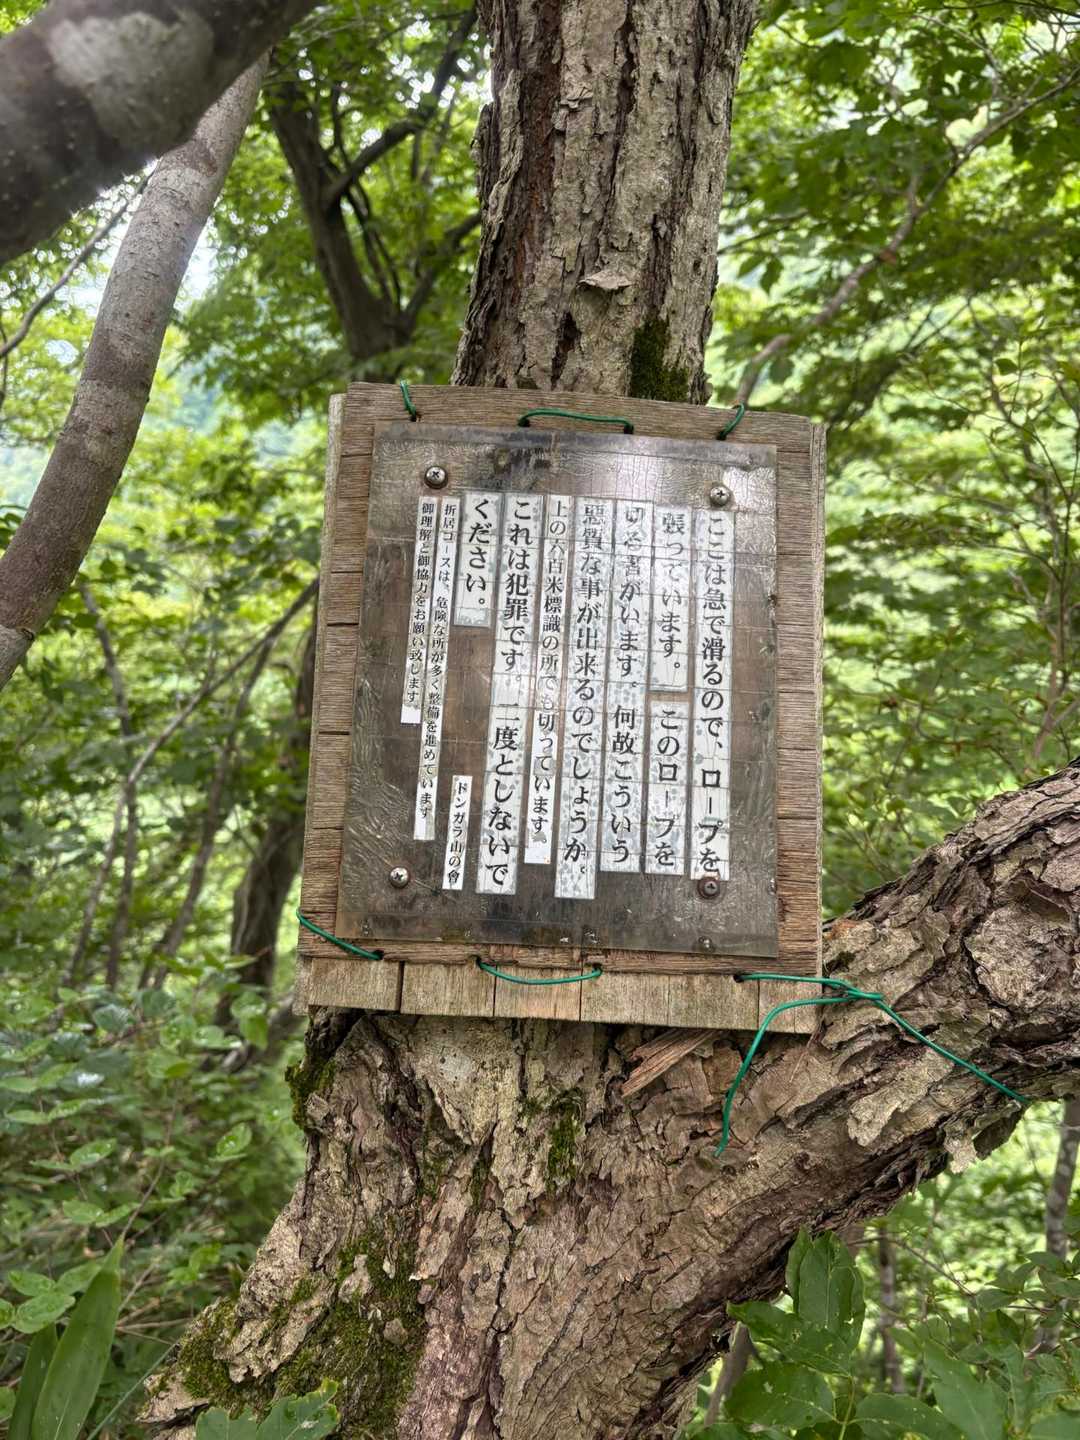 ここは急で滑るので、ロープを
張っています。このロープを
切る者がいます。何故こういう
悪質な事が出来るのでしょうか。
上の六百米標識の所でも切っています。
これは犯罪です。二度としないで
ください。
ドンガラ山の會
折居コースは、危険な所が多く整備を進めています
御理解と御協力をお願い致します。